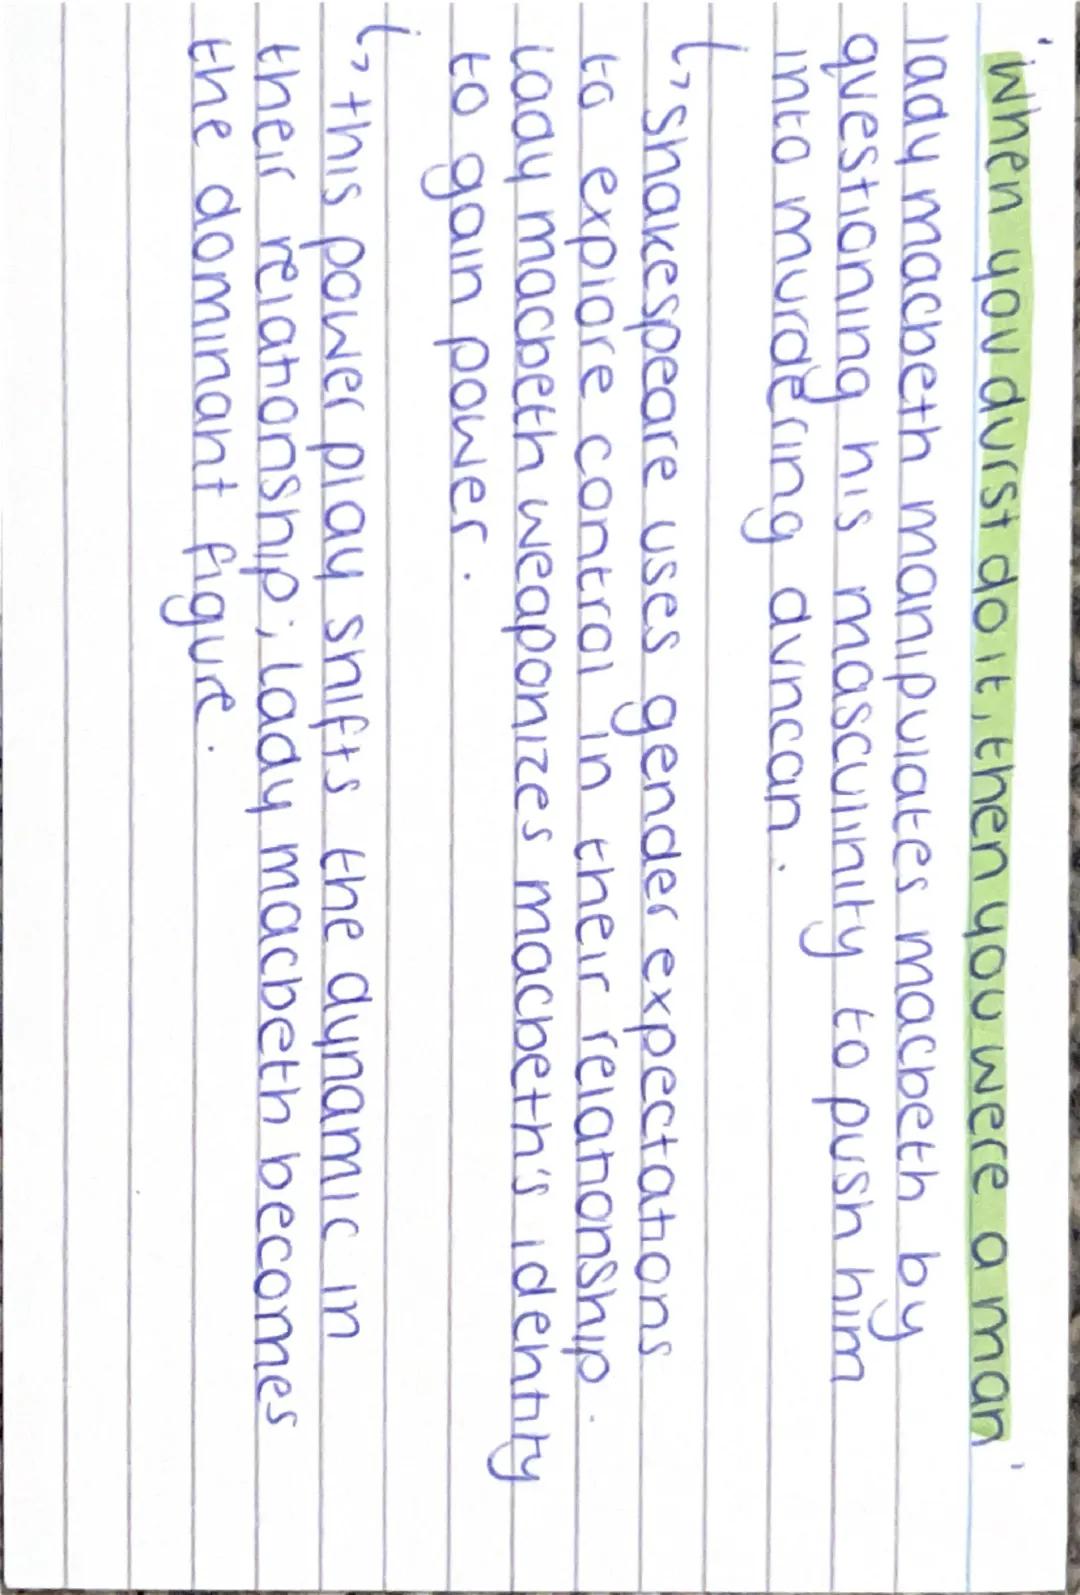 'when you durst do it, then you were a man'
lady macbeth manipulates macbeth by
questioning his masculinity to push him
into murdering duncan.
↳ shakespeare uses gender expectations
to explore control in their relationship.
lady macbeth weaponizes macbeth's identity
to gain power.
↳ this power play shifts the dynamic in
their relationship; lady macbeth becomes
the dominant figure.